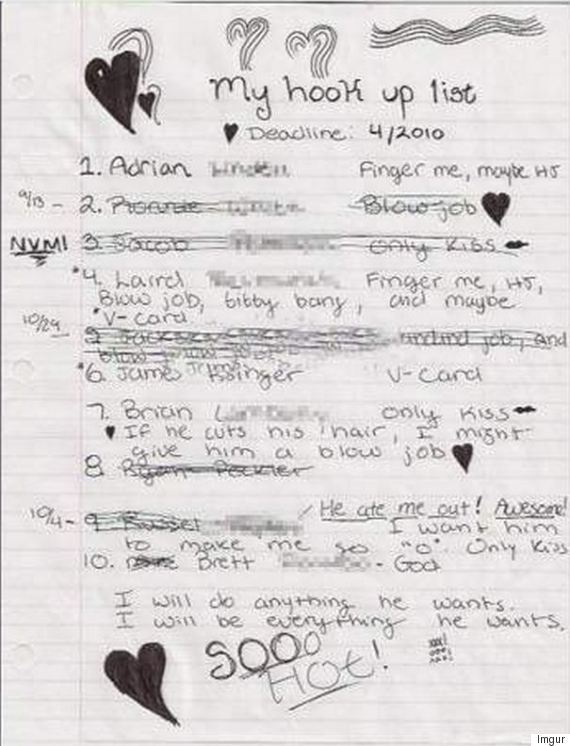 My hook up list
Deadline: 4/2010
1. Adrian Finger me, maybe HJ
9/13 - 2. Blow job
NVM! 3. Jacob only kiss
*4. Laird Finger me, HJ,
Blow job, bitty bang, and maybe
*V-card
10/29 5. job, and
blow
*6. V-card
7. Brian only kiss
If he cuts his hair, I might
give him a blow job
8.
10/4 - 9. He ate me out! Awesome!
I want him
to make me go "o". Only kiss
10. Brett - God
I will do anything he wants.
I will be everything he wants.
SOOO
HOT!
Imgur